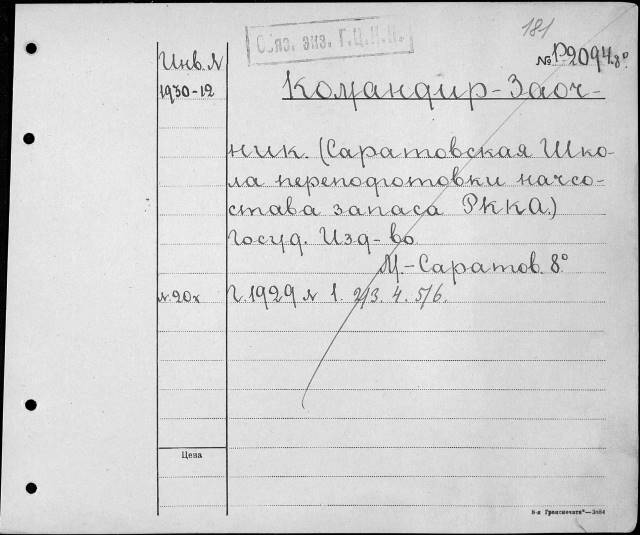 181
Обяз. экз. Г.Ц.К.П.
Инв. №
№ Р2094. 8°
1930-12
Командир-Заоч-
ник. (Саратовская Шко-
ла переподготовки начсо-
става запаса РККА.)
Госуд. Изд-во
М.-Саратов. 8°
л. 20х
Г. 1929 № 1. 2/3. 4. 5/6.
Цена